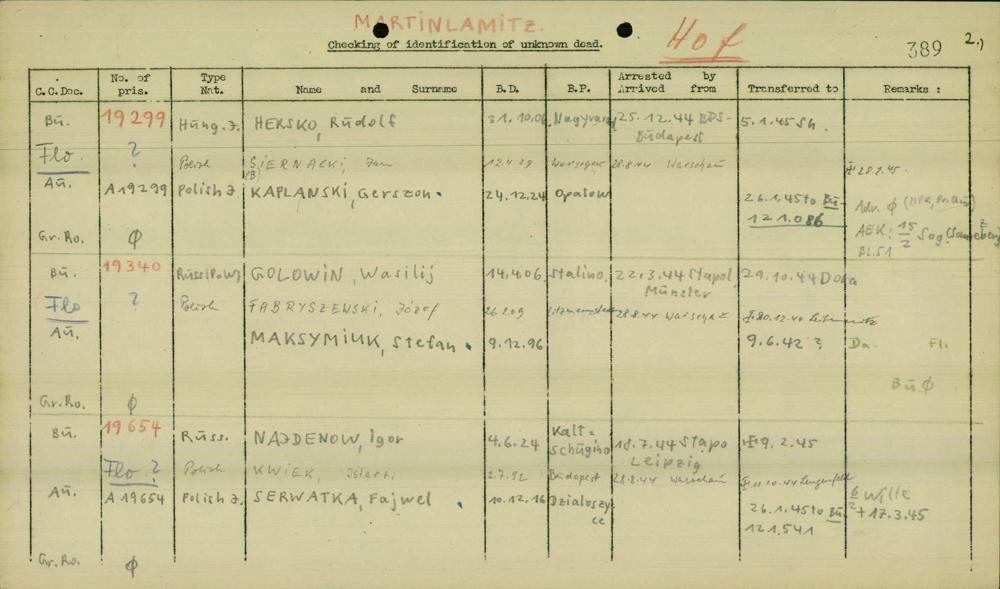 MARTINLAMITZ.
Checking of identification of unknown dead.
Hof
389 2.)
C.C.Doc. No. of pris. Type Nat. Name and Surname B.D. B.P. Arrested by Arrived from Transferred to Remarks :
Bū. 19299 Hung. J. HERSKO, Rūdolf 31.10.06 Nagyvarad 25.12.44 BDS-
Būdapest 5.1.45 Sh.
Flo ? Polish SIERNACKI, Jan 12.4.29 28.8.44 Warschau ‡ 28.2.45.
(B)
Aū. A19299 Polish J. KAPLANSKI, Gerszon. 24.12.24 Opatow 26.1.45 to Bū
121.086
Adv. φ
AEK: 15/2 Sog.
BL.51
Gr.Ro. φ
Bū. 19340 Rūss(PoW) GOLOWIN, Wasilij 14.4.06. Stalino, 22.3.44 Stapol 29.10.44 Dora
Mūnster
Flo ? Polish FABRYSZEWSKI, Józef 26.2.09 28.8.44 Warschau
Aū. MAKSYMIUK, Stefan. 9.12.96 9.6.42 ? Da. Fl.
Bū φ
Gr.Ro. φ
Bū. 19654 Rūss. NAJDENOW, Igor 4.6.24 Kalt=
Schūgino 18.7.44 Stapo
Leipzig ‡ 9.2.45
Flo ? Polish KWIEK, 2.7.92 Budapest 28.8.44 Warschau
Aū. A 19654 Polish J. SERWATKA, Fajwel. 10.12.16 Dzialoszy
ce 26.1.45 to Bū
121.541
Wille
+ 17.3.45
Gr.Ro. φ